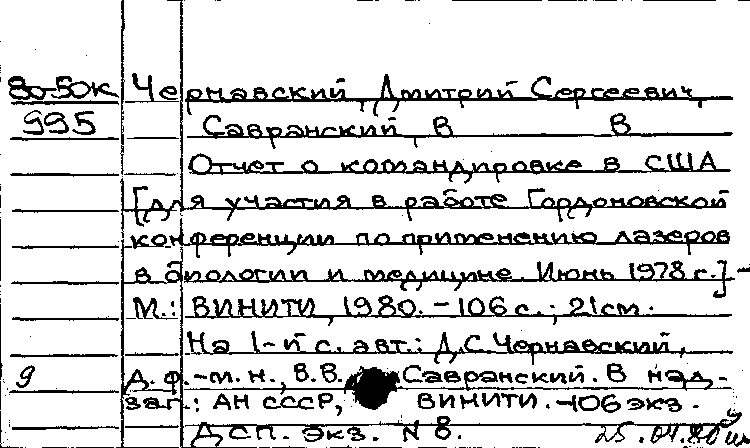 80-50к Чернавский, Дмитрий Сергеевич,
995 Савранский, В В
Отчет о командировке в США
[для участия в работе Гордоновской
конференции по применению лазеров
в биологии и медицине. Июнь 1978 г.] -
М.: ВИНИТИ, 1980. - 106 с.; 21 см.
На 1-й с. авт.: Д.С. Чернавский,
9 д.ф.-м.н., В.В. Савранский. В над-
заг.: АН СССР, ВИНИТИ. - 106 экз.
ДСП. Экз. N 8. 25.04.80